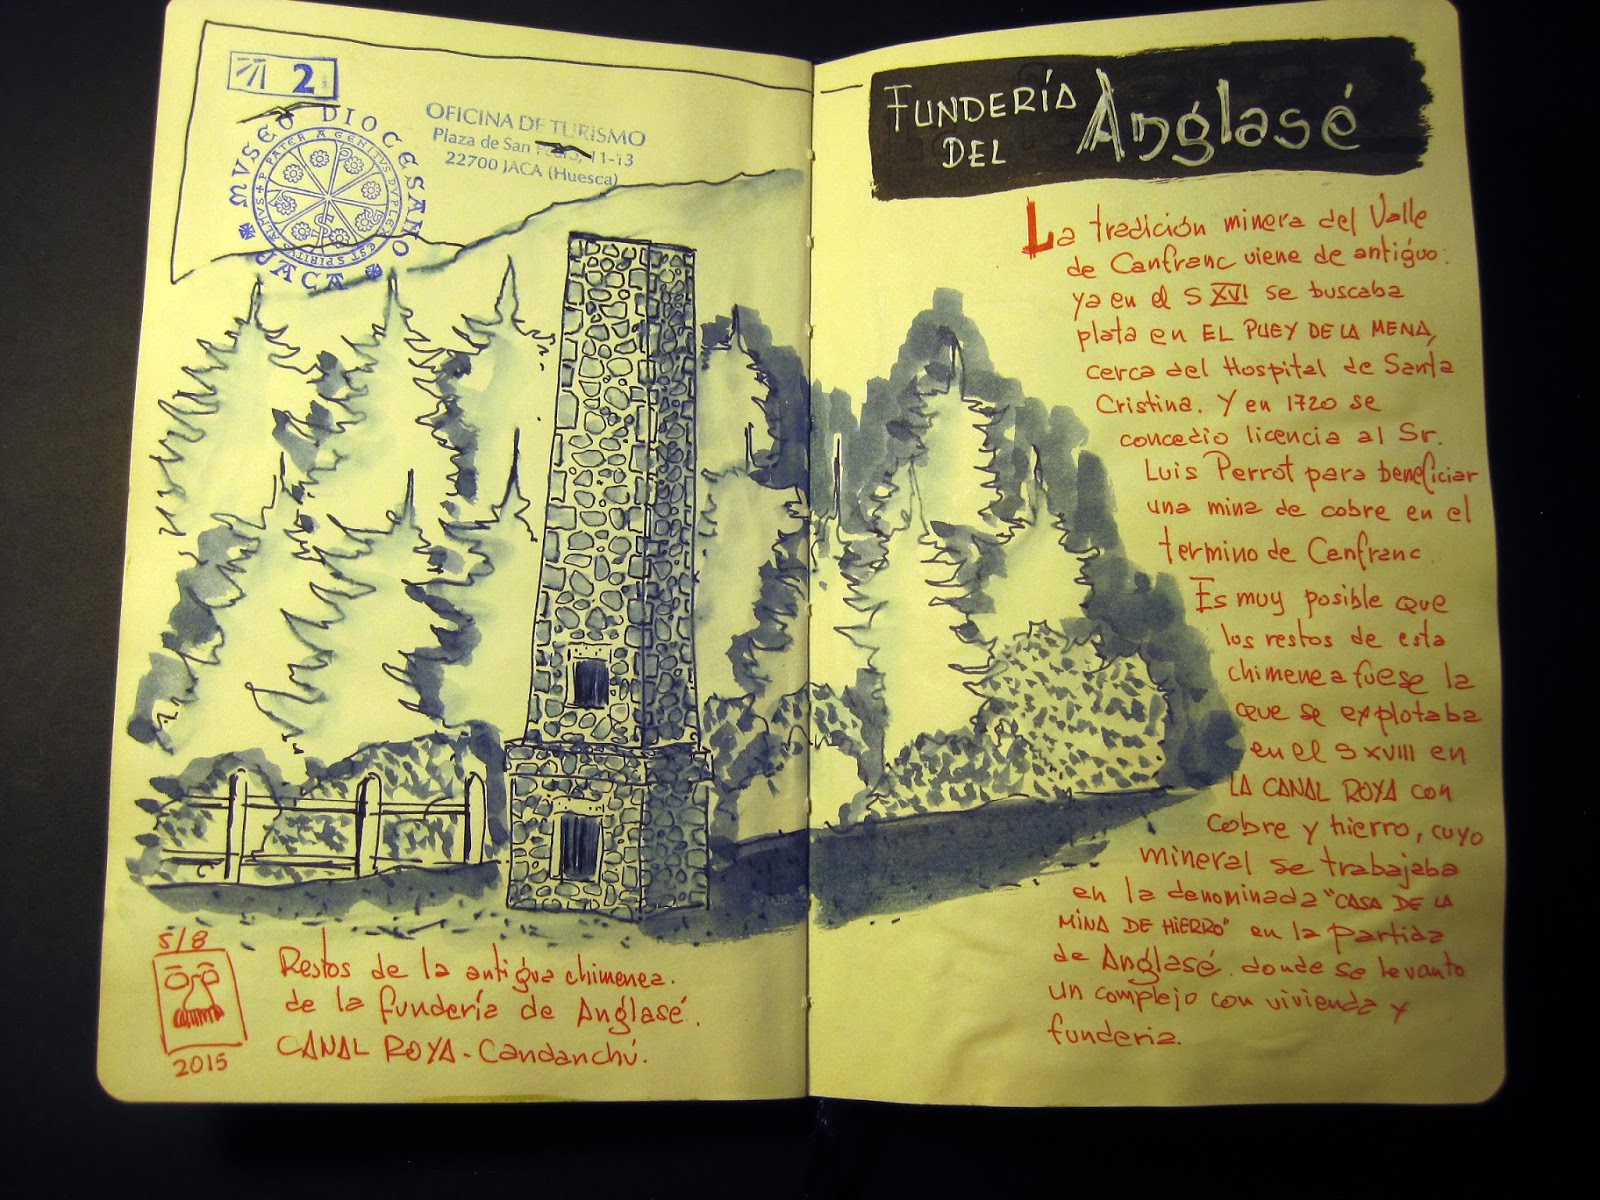 2
MVSEO DIOCESANO
JACA
OFICINA DE TURISMO
Plaza de San Pedro, 11-13
22700 JACA (Huesca)
5/8
2015
Restos de la antigua chimenea.
de la fundería de Anglasé.
CANAL ROYA - Candanchú.
FUNDERÍA
DEL Anglasé
La tradición minera del Valle
de Canfranc viene de antiguo:
ya en el S XVI se buscaba
plata en EL PUEY DE LA MENA,
cerca del Hospital de Santa
Cristina. Y en 1720 se
concedio licencia al Sr.
Luis Perrot para beneficiar
una mina de cobre en el
termino de Canfranc
Es muy posible que
los restos de esta
chimenea fuese la
que se explotaba
en el S XVIII en
LA CANAL ROYA con
cobre y hierro, cuyo
mineral se trabajaba
en la denominada "CASA DE LA
MINA DE HIERRO" en la partida
de Anglasé. donde se levanto
un complejo con vivienda y
funderia.